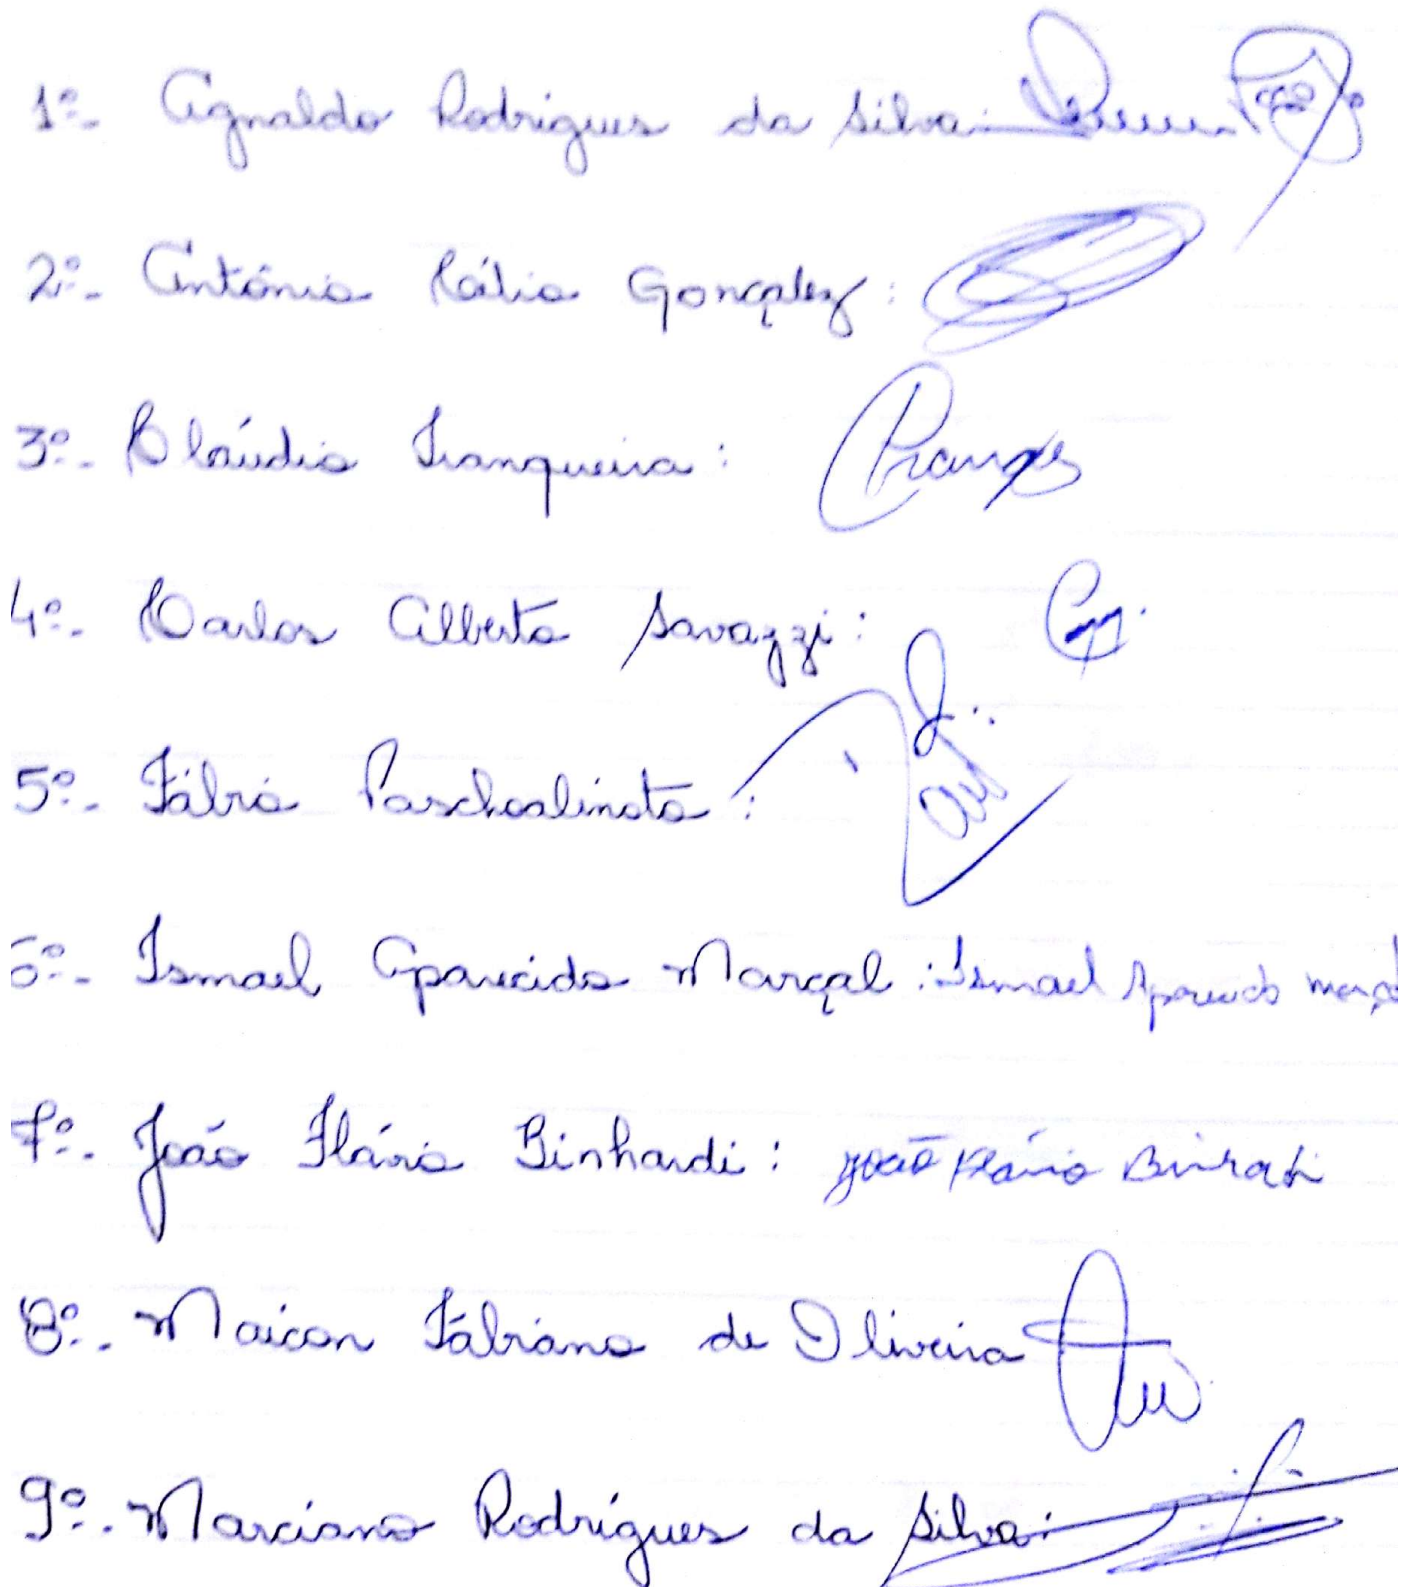 1º- Agnaldo Rodrigues da Silva:
2º- Antônio Célio Gonçalez:
3º- Cláudio Tranqueira:
4º- Carlos Alberto Savazzi:
5º- Fábio Paschoalinoto:
6º- Ismael Aparecido Marçal: Ismael Aparecido Marçal
7º- João Flávio Binhardi: João Flávio Binhardi
8º- Maicon Fabiano de Oliveira
9º- Marciano Rodrigues da Silva: